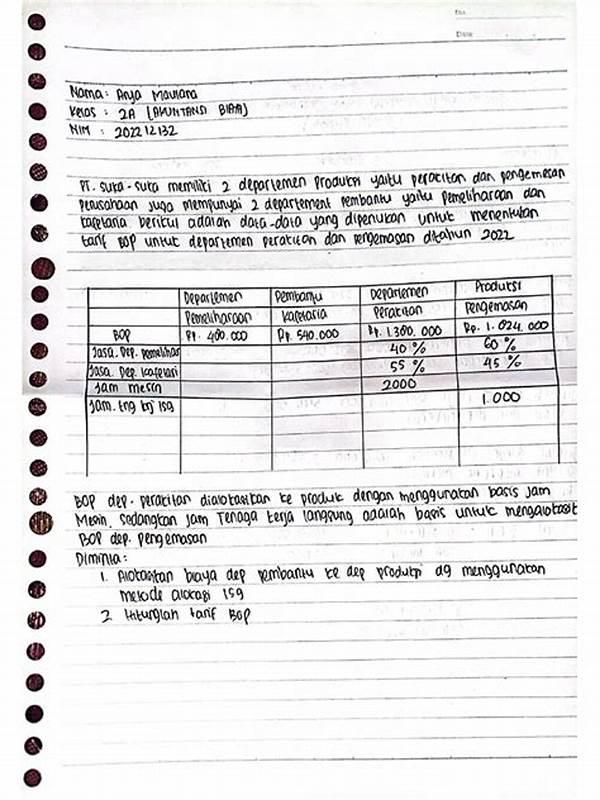 No.
Date
Nama : Arya Maulana
Kelas : 2A [AKUNTANSI BIAYA]
NIM : 202212132
PT. suka-suka memiliki 2 departemen Produksi yaitu perakitan dan pengemasan
perusahaan juga mempunyai 2 departement pembantu yaitu Pemeliharaan dan
kafetaria berikut adalah data-data yang diperlukan untuk menentukan
tarif BOP untuk departemen perakitan dan pengemasan ditahun 2022
Departemen Pembantu Departemen Produksi
Pemeliharaan kafetaria Perakitan Pengemasan
BOP Rp. 400.000 Rp. 540.000 Rp. 1.300.000 Rp. 1.024.000
Jasa. Dep. pemelihar 40 % 60 %
Jasa. Dep. kafetari 55 % 45 %
Jam mesin 2000
Jam. tng krj lsg 1.000
BOP dep. perakitan dialokasikan ke produk dengan menggunakan basis jam
Mesin, sedangkan jam Tenaga kerja langsung adalah basis untuk mengalokasik
BOP dep. pengemasan
Diminta :
1. Alokasikan biaya dep pembantu ke dep produksi dg menggunakan
metode alokasi lsg
2. Hitunglah tarif BOP